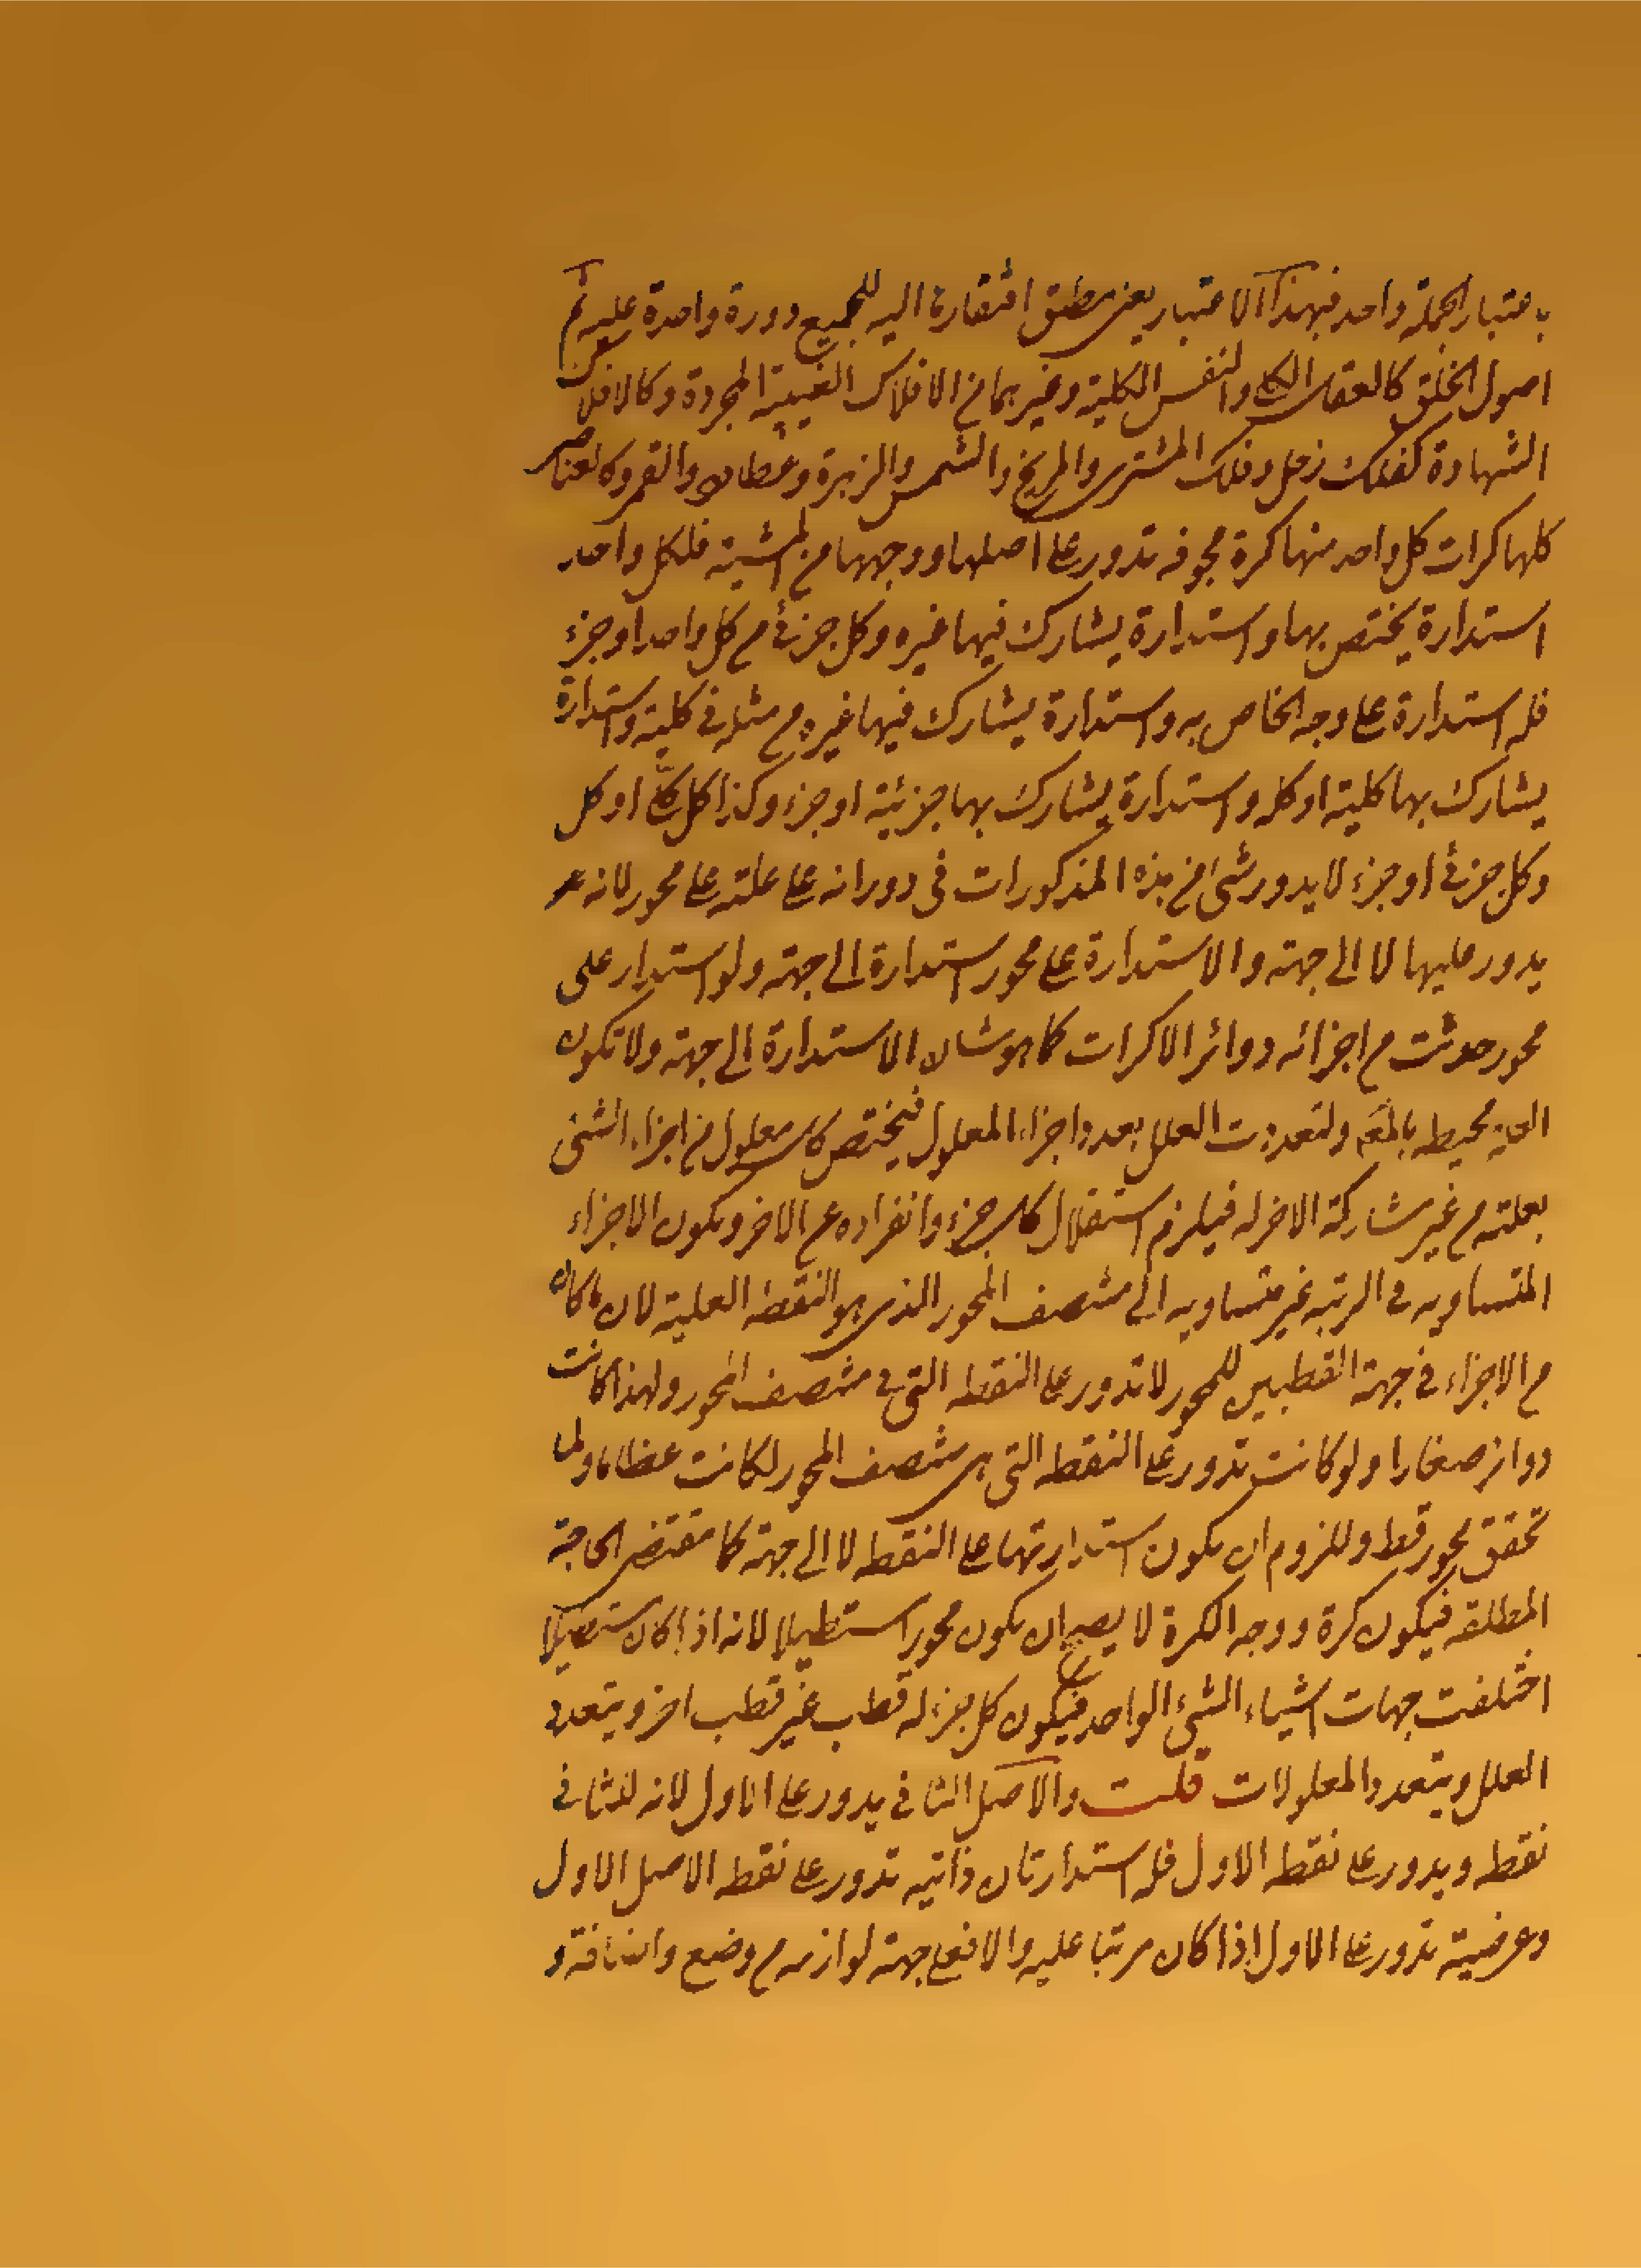 باعتبار الجملة واحد فبهذا الاعتبار يعنى مطلق افتقارها اليه للجميع دورة واحدة عليه ثم
اصول الخلق كالعقل الكلى والنفس الكلية وغيرهما من الافلاك الغيبية المجردة وكالافلاك
الشهادة كفلك زحل وفلك المشترى والمريخ والشمس والزهرة وعطارد والقمر وكالعناصر
كلها كرات كل واحد منها كرة مجوفه تدور على اصلها ووجهها من المشية فلكل واحد
استدارة يختص بها واستدارة يشارك فيها غيره وكل جزئى من كل واحد او جزء
فله استدارة على وجه الخاص به واستدارة يشارك فيها غيره من مثله فى كلية واستدارة
يشارك بها كلية او كله واستدارة يشارك بها جزئية او جزء وكذا كل كلى او كل
وكل جزئى او جزء لا يدور شئ من هذه المذكورات فى دورانه على علته على محور لانه
يدور عليها لا الى جهة والاستدارة على محور استدارة الى جهة ولو استدار على
محور حدثت من اجزائه دوائر الاكرات كما هو شان الاستدارة الى جهة ولا تكون
العلة محيطه بالمعلول ولتعددت العلل بعدد اجزاء المعلول فيختص كل معلول من اجزاء الشئ
بعلته من غير مشاركة الاخر له فيلزم استقلال كل جزء وانفراده عن الاخر ويكون الاجزاء
المتساويه فى الرتبه غير متساويه الى منتصف المحور الذى هو النقطه العلية لان ما كان
من الاجزاء فى جهة القطبين للمحور لا تدور على النقطه التى فى منتصف المحور ولهذا كانت
دوائر صغارا ولو كانت تدور على النقطه التى هى منتصف المحور لكانت عظاما ولما
تحقق محور قط وللزوم ان يكون استدارتها على النقطه لا الى جهة كما مقتضى الحاجة
المطلقه فيكون كرة ووجه الكرة لا يصح ان يكون محورا مستطيلا لانه اذا كان مستطيلا
اختلفت جهات اشياء الشئ الواحد فيكون كل جزء له قطب غير قطب اخر ويتعدد
العلل ويتعدد المعلولات قلت والاصل الثانى يدور على الاول لانه للثانى
نقطه ويدور على نقطه الاول فله استدارتان ذاتيه تدور على نقطه الاصل الاول
وعرضية تدور على الاول اذا كان مرتبا عليه والا فعلى جهة لوازمه من وضع واضافة و